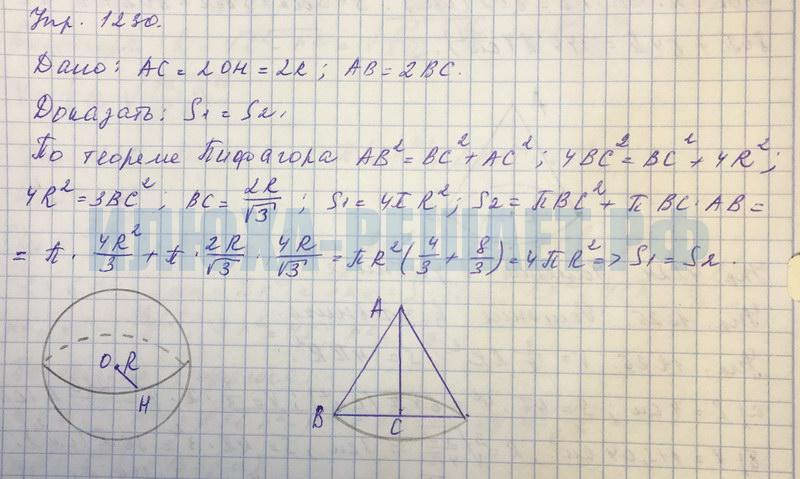 Упр. 1230.
Дано: AC = 2OH = 2R; AB = 2BC.
Доказать: S1 = S2.
По теореме Пифагора AB² = BC² + AC²; 4BC² = BC² + 4R²;
4R² = 3BC²; BC = 2R/√3; S1 = 4πR²; S2 = πBC² + πBC·AB =
= π · 4R²/3 + π · 2R/√3 · 4R/√3 = πR²(4/3 + 8/3) = 4πR² => S1 = S2.
ИЛЮХА-РЕШАЕТ.РФ
O R
H
A
B C